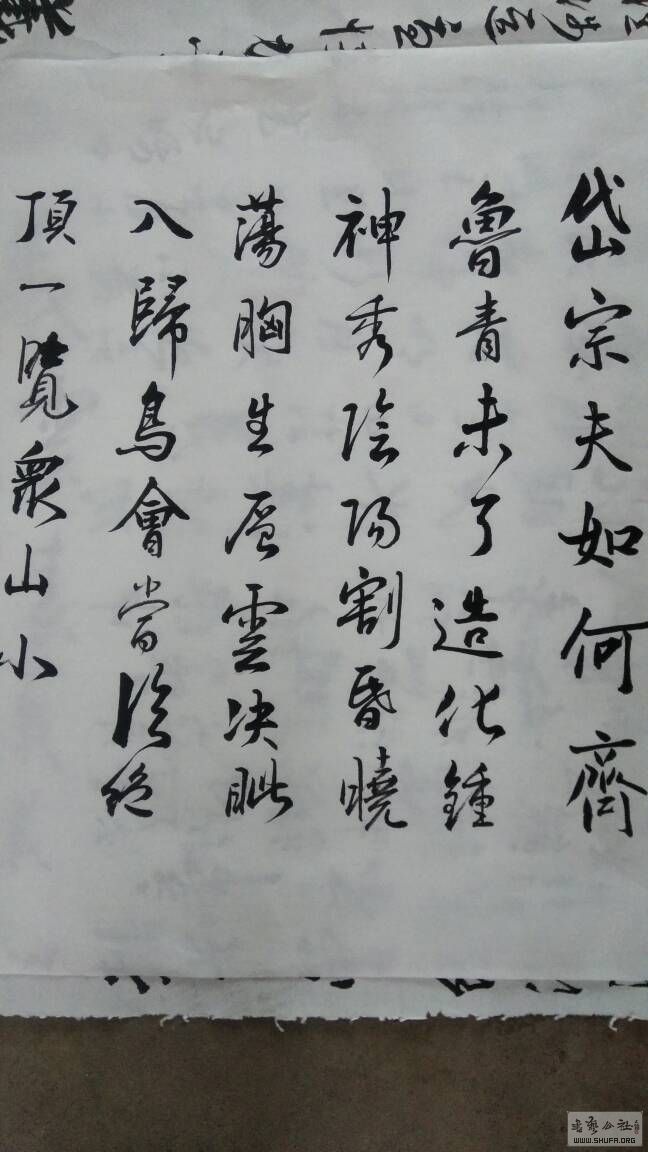 岱宗夫如何齊
魯青未了造化鍾
神秀陰陽割昏曉
蕩胸生層雲决眦
入歸鳥會當臨絶
頂一覽衆山小
書藝公社
WWW.SHUFA.ORG